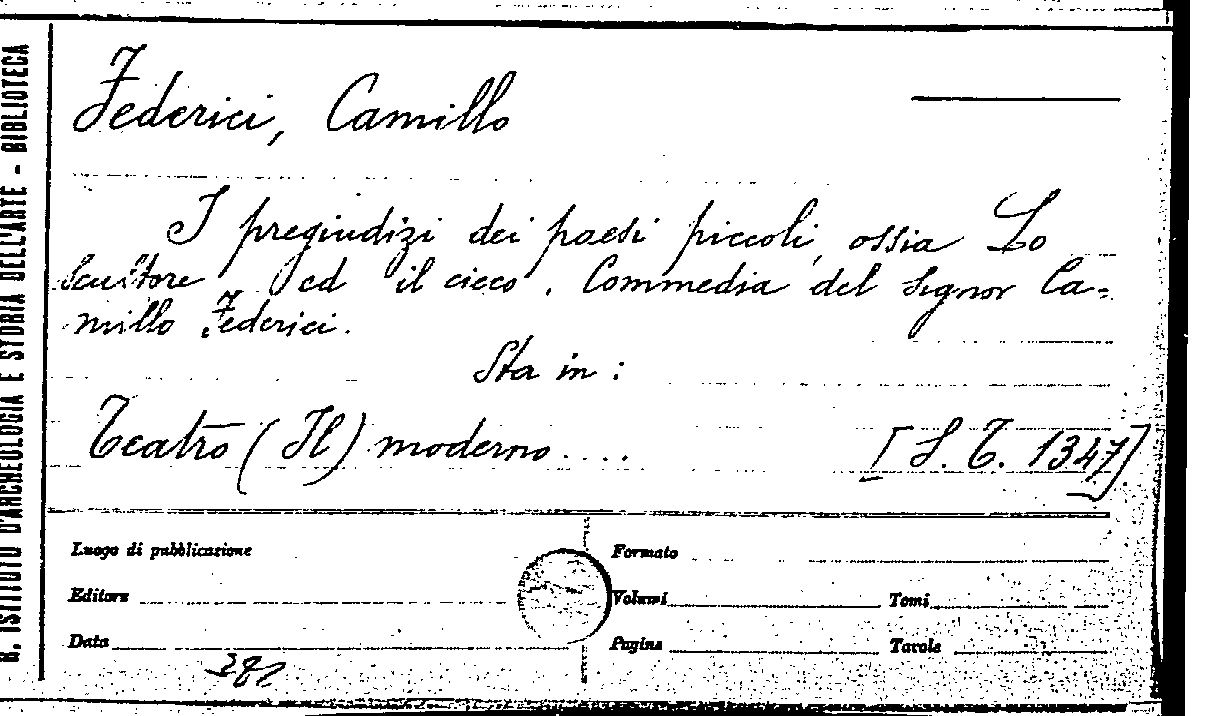 R. ISTITUTO D'ARCHEOLOGIA E STORIA DELL'ARTE - BIBLIOTECA
Federici, Camillo
I pregiudizi dei paesi piccoli, ossia Lo
scultore ed il cieco. Commedia del signor Ca-
millo Federici.
Sta in:
Teatro (Il) moderno.... [S. T. 1347]
Luogo di pubblicazione
Formato
Editore
Volumi
Tomi
Data
Pagine
Tavole